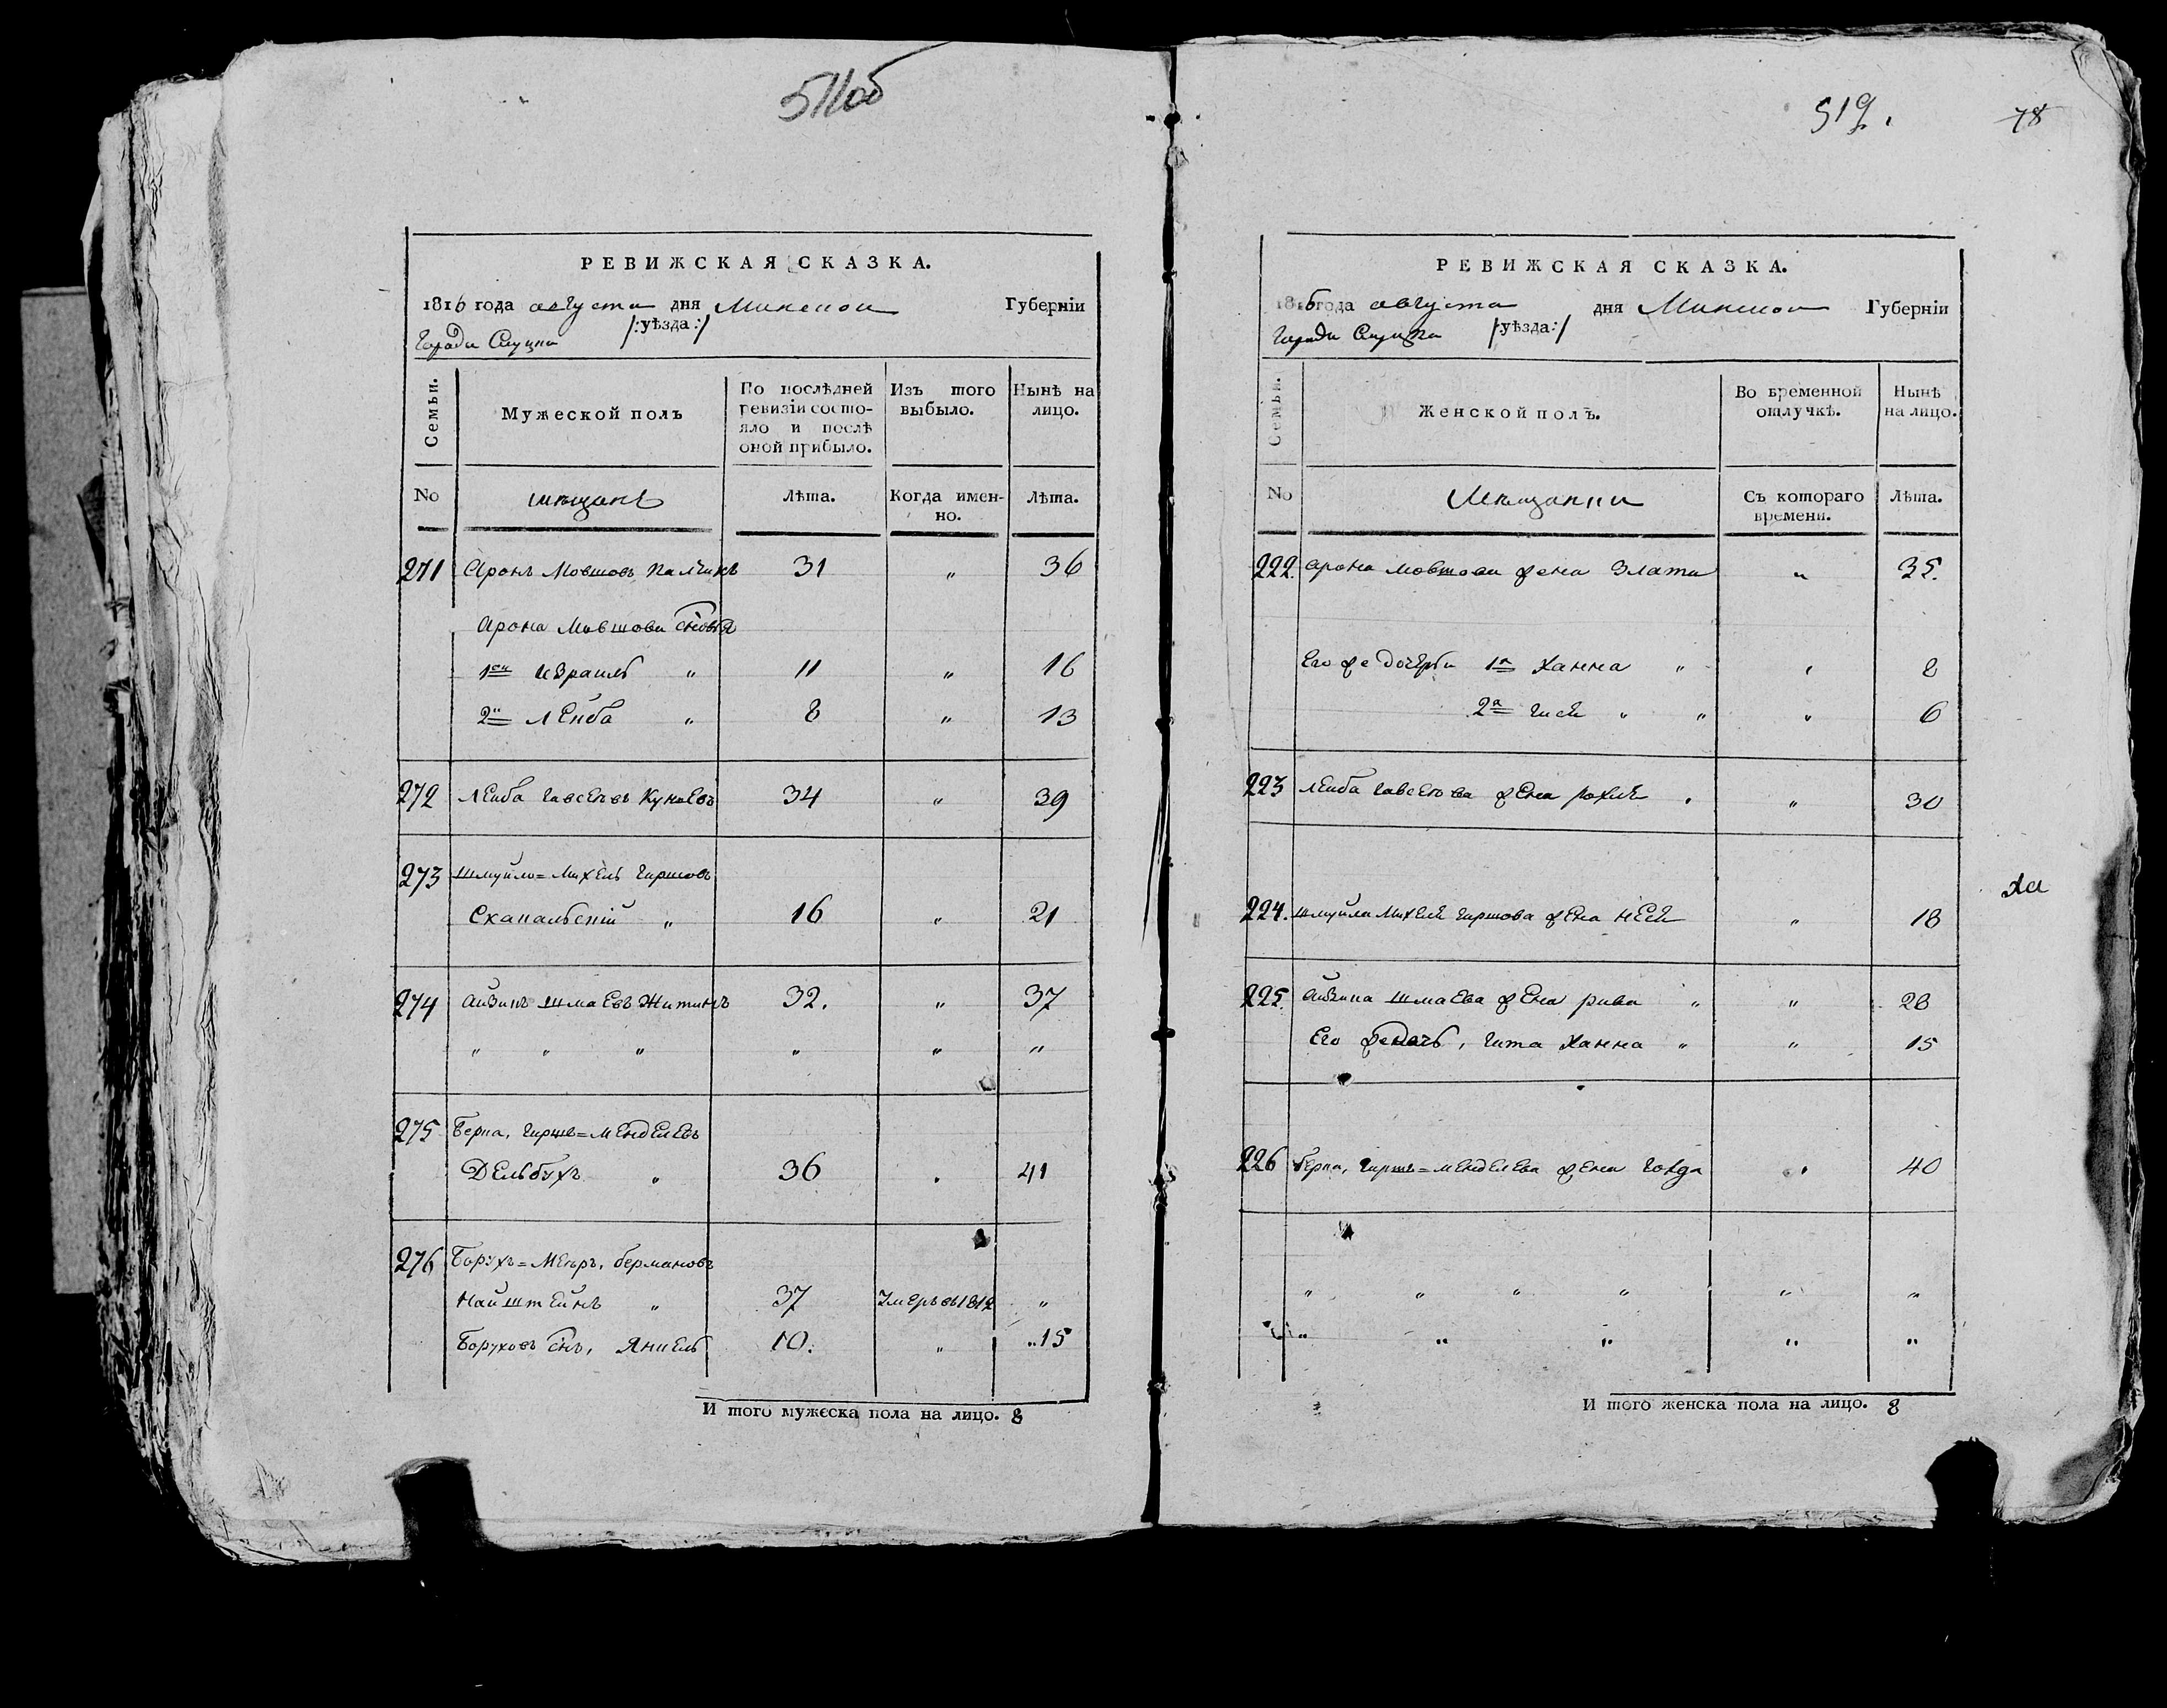 511об
РЕВИЖСКАЯ СКАЗКА.
1816 года августа дня Минской Губерніи
города Слуцка /:уѣзда:/
Семьи.
Мужеской полъ
По послѣдней ревизіи состояло и послѣ оной прибыло.
Изъ того выбыло.
Нынѣ на лицо.
No мѣщанѣ Лѣта. Когда именно. Лѣта.
271 Аронъ Мовшовъ 31 „ 36
Арона Мовшова сновья
1ой Израиль „ 11 „ 16
2й Лейба „ 8 „ 13
272 Лейба Говсеевъ 34 „ 39
273 Шмуйло=Михель Гиршовъ
„ 16 „ 21
274 Айзикъ Шмаевъ Житникъ 32. „ 37
„ „ „ „ „ „
275 Берка, Гиршъ=Менделевъ
Дельбухъ „ 36 „ 41
276 Борухъ=Мееръ, Бермановъ
Найштейнъ „ 37 Умеръ въ 1812 „
Боруховъ снъ, Янкель 10. „ „15
И того мужеска пола на лицо. 8
519. 78
РЕВИЖСКАЯ СКАЗКА.
1816 года августа дня Минской Губерніи
города Слуцка /:уѣзда:/
Семьи.
Женской полъ.
Во временной отлучкѣ.
Нынѣ на лицо.
No Мѣщанки Съ котораго времени. Лѣта.
222. Арона Мовшова жена Злата „ 35.
Его же дочерьи 1я Ханна „ „ 8
2я „ „ „ 6
223 Лейба Говсеева жена Рохля „ „ 30
224. Шмуйла Михеля Гиршова жена „ 18
225. Айзика Шмаева жена Рива „ „ 28
Его же дочь, Гита Ханна „ „ 15
226 Берка, Гиршъ=Менделева жена „ 40
„ „ „ „ „ „
„ „ „ „ „
И того женска пола на лицо. 8